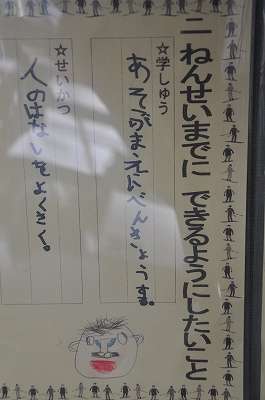 二ねんせいまでに できるようにしたいこと
☆学しゅう
あそぶまえにべんきょうする。
☆せいかつ
人のはなしをよくきく。